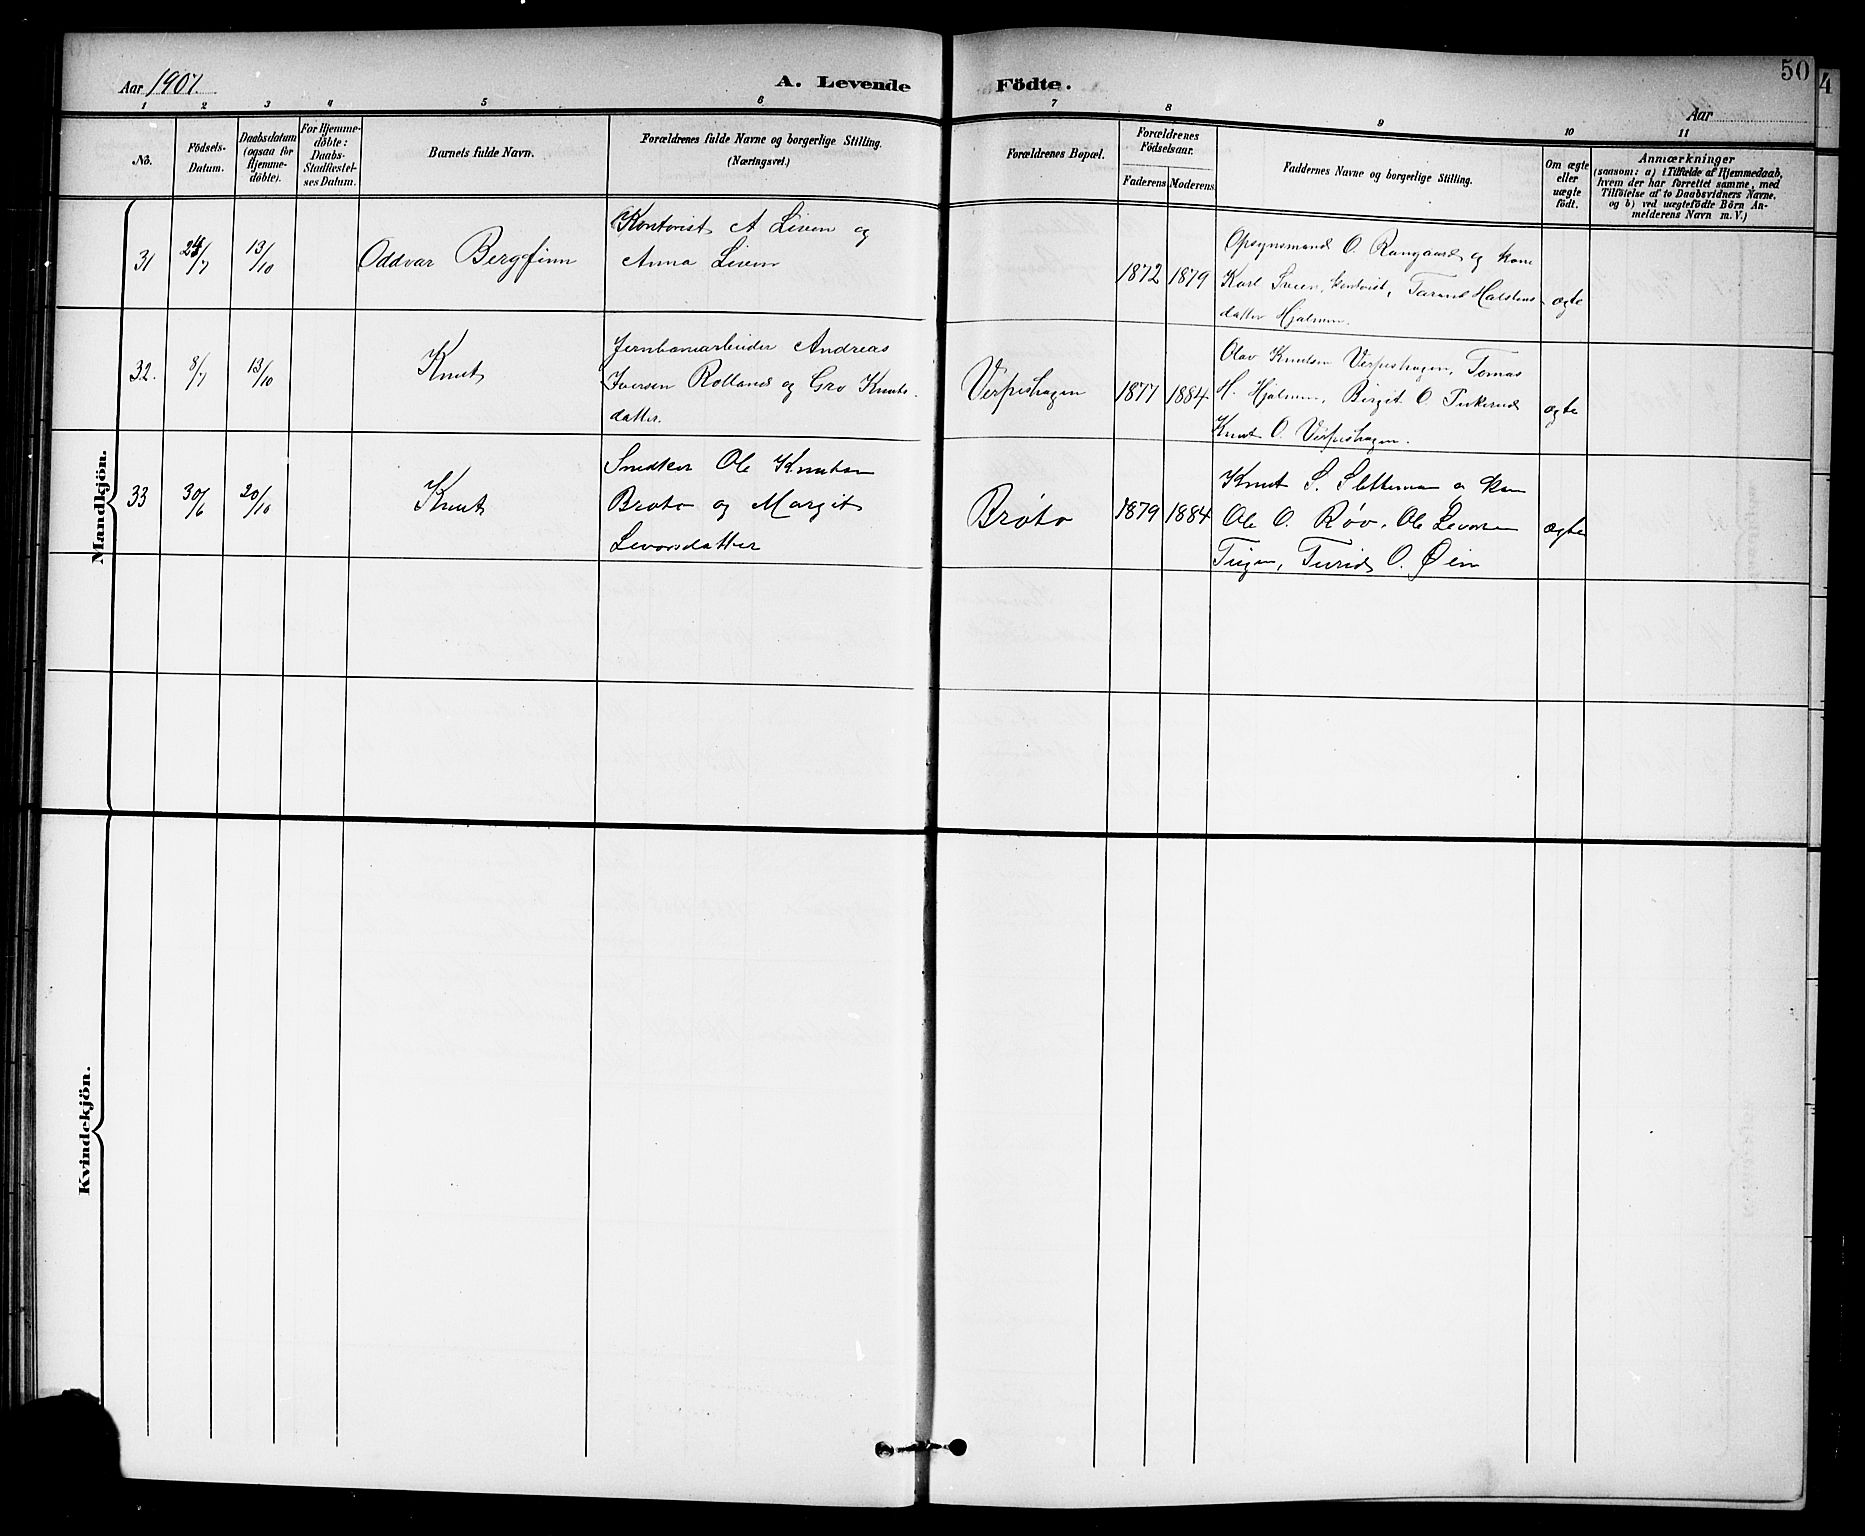 50
4
Aar 1907.
A. Levende Födte.
Aar
1 2 3 4 5 6 7 8 9 10 11
No.
Födsels-
Datum.
Daabsdatum
(ogsaa for
Hjemme-
döbte).
For Hjemme-
döbte:
Daabs-
Stadfæstel-
ses Datum.
Barnets fulde Navn.
Forældrenes fulde Navne og borgerlige Stilling.
(Næringsvei.)
Forældrenes Bopæl.
Forældrenes
Födselsaar.
Faderens Moderens
Faddernes Navne og borgerlige Stilling.
Om ægte
eller
uægte
födt.
Anmærkninger
(saasom: a) i Tilfælde af Hjemmedaab,
hvem der har forrettet samme, med
Tilföielse af to Daabsvidners Navne.
og b) ved uægtefödte Börn An-
melderens Navn m. V.)
Mandkjön.
31 24/7 13/10 Oddvar Bergfinn
Kontorist A Liven og
Anna Liven
1872 1879
Opsynsmand O. Rangaard og kone
Karl Sveen, kontorist, Tarand Halstens
datter Hjelmen.
ægte
32. 8/7 13/10 Knut
Jernbanearbeider Andreas
Iversen Rolland og Gro Knuts-
datter.
Verpeshagen 1877 1884
Olav Knutsen Verpeshagen, Tomas
H. Hjelmen, Birgit O.
Knut O. Verpeshagen.
ægte
33 30/6 20/10 Knut
Snedker Ole Knutsen
Brøto og Margit
Levorsdatter
Brøto 1879 1884
Knut S. Slettemoen og kone
Ole O. Røv, Ole Levorsen
Turid O. Øien
ægte
Kvindekjön.